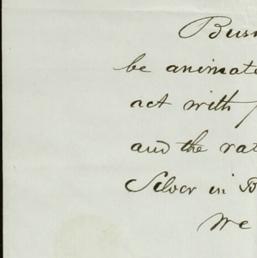 be animate
act with
and the rat
Silver in B
We